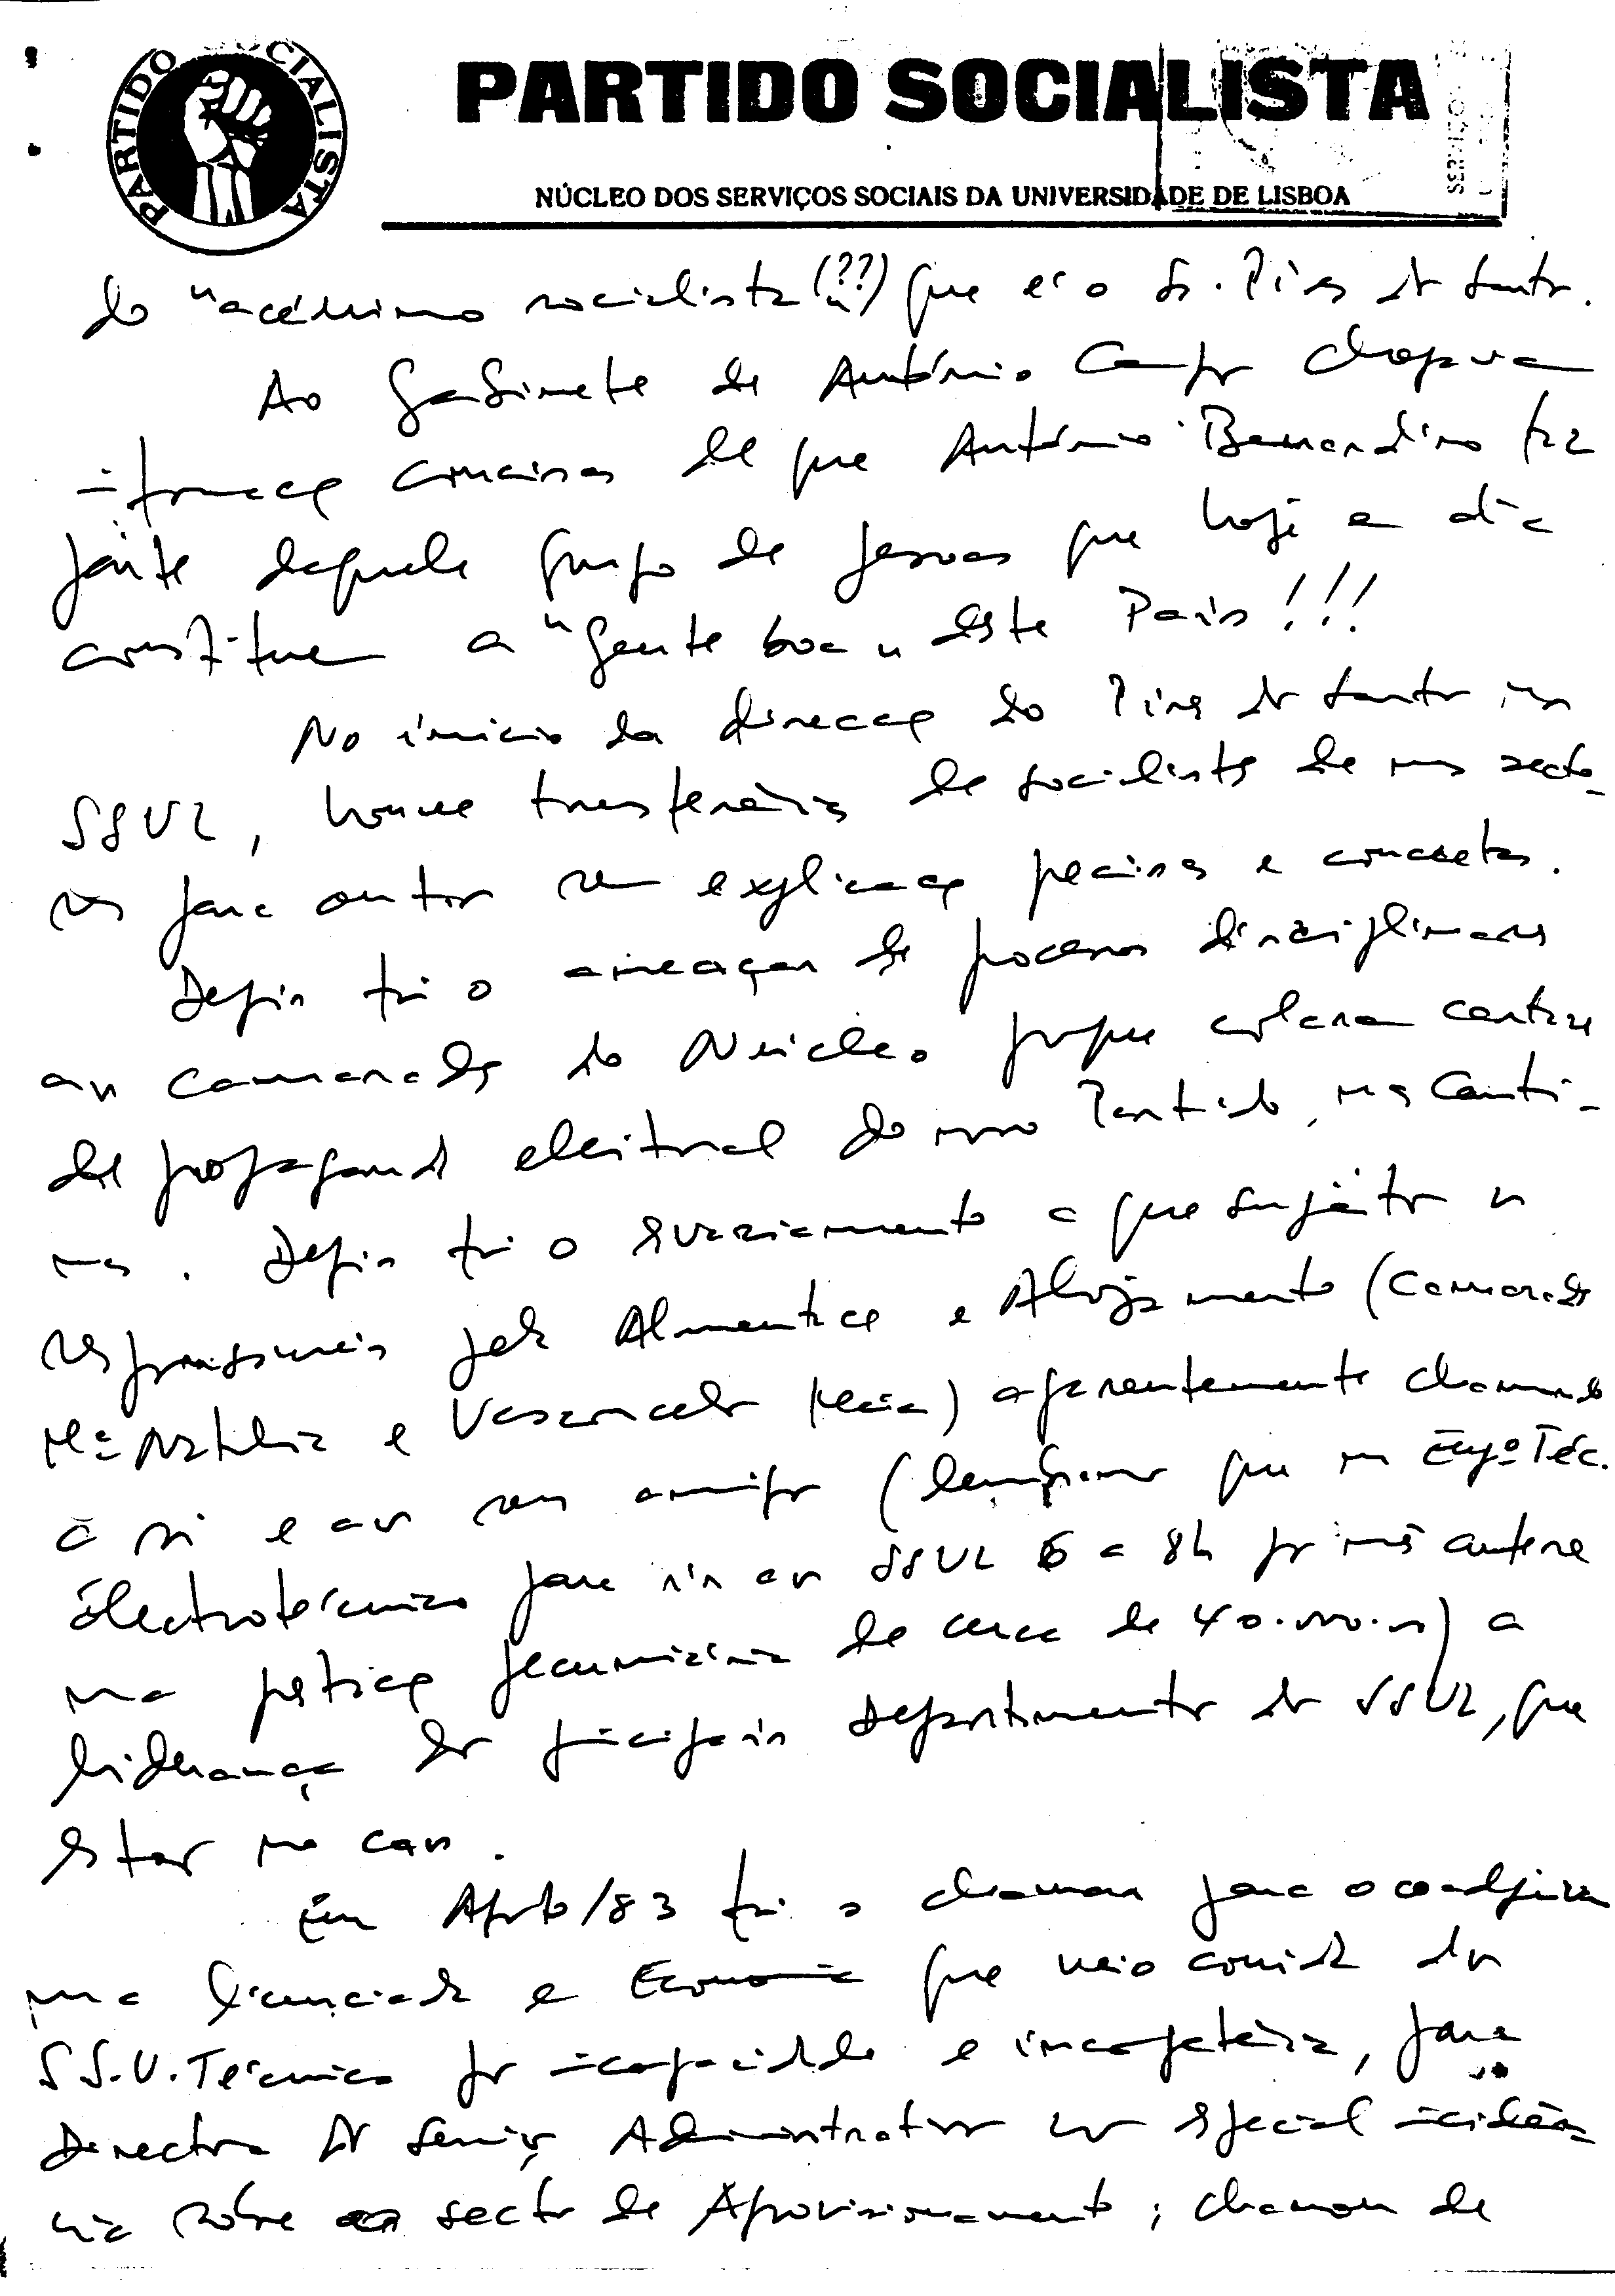 PARTIDO SOCIALISTA
PARTIDO SOCIALISTA
NÚCLEO DOS SERVIÇOS SOCIAIS DA UNIVERSIDADE DE LISBOA
do "acérrimo socialista (??)" que é o Dr. Pires dos Santos.
Ao Gabinete de António Campos
de que António Bernardino faz
parte daquele grupo de pessoas que hoje em dia
constituem a "gente boa" deste País!!!
No início da direcção do Pires dos Santos nos
SSUL, houve transferências de socialistas de uns secto-
res para outros sem explicação precisa e concreta.
Depois foi o ameaçar de processos disciplinares
aos camaradas do Núcleo porque colaram cartazes
de propaganda eleitoral do nosso Partido, nas Canti-
nas. Depois foi o a que sujeitou os
responsáveis pela Alimentação e Alojamento (Camaradas
Mª Natália e Vasconcelos Maia) aparentemente chamando
a si e aos seus amigos (lembramos que um Engº Téc.
Electrotécnico para ir aos SSUL 6 a 8h por mês aufere
uma pecuniária de cerca de 40.000.00) a
liderança dos principais Departamentos dos SSUL, que
estão no caos.
Em Agosto/83 foi o chamar para o coadjuvar
uma licenciada em Economia que veio corrida dos
S.S.U.Técnica por incapacidade e incompetência, para
Directora dos Serviços Administrativos com especial incidên-
cia sobre sector de Aprovisionamento; chamou de